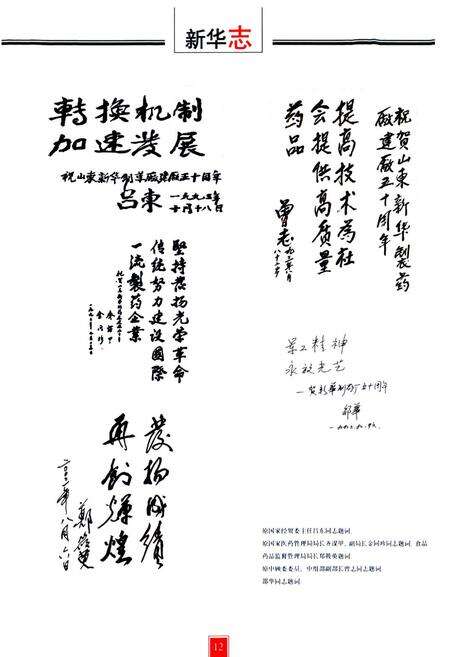 新华志
轉換机制
加速发展
祝山東新华制药厂建厂五十周年
吕東
一九九三年
十月十八日
祝賀山東新华製药
廠建廠五十周年
提高技术為社
会提供高质量
药品
曾志
堅持发扬光荣革命
传统努力建设國際
一流製药企業
精神
永放光芒
—贺新华制药厂五十周年
邵華
發扬成績
再創輝煌
八月六日
鄭筱萸
原国家经贸委主任吕东同志题词
原国家医药管理局局长齐谋甲、副局长金同玲同志题词、食品
药品监督管理局局长郑筱萸题词
原中顾委委员、中组部副部长曾志同志题词
邵华同志题词
12